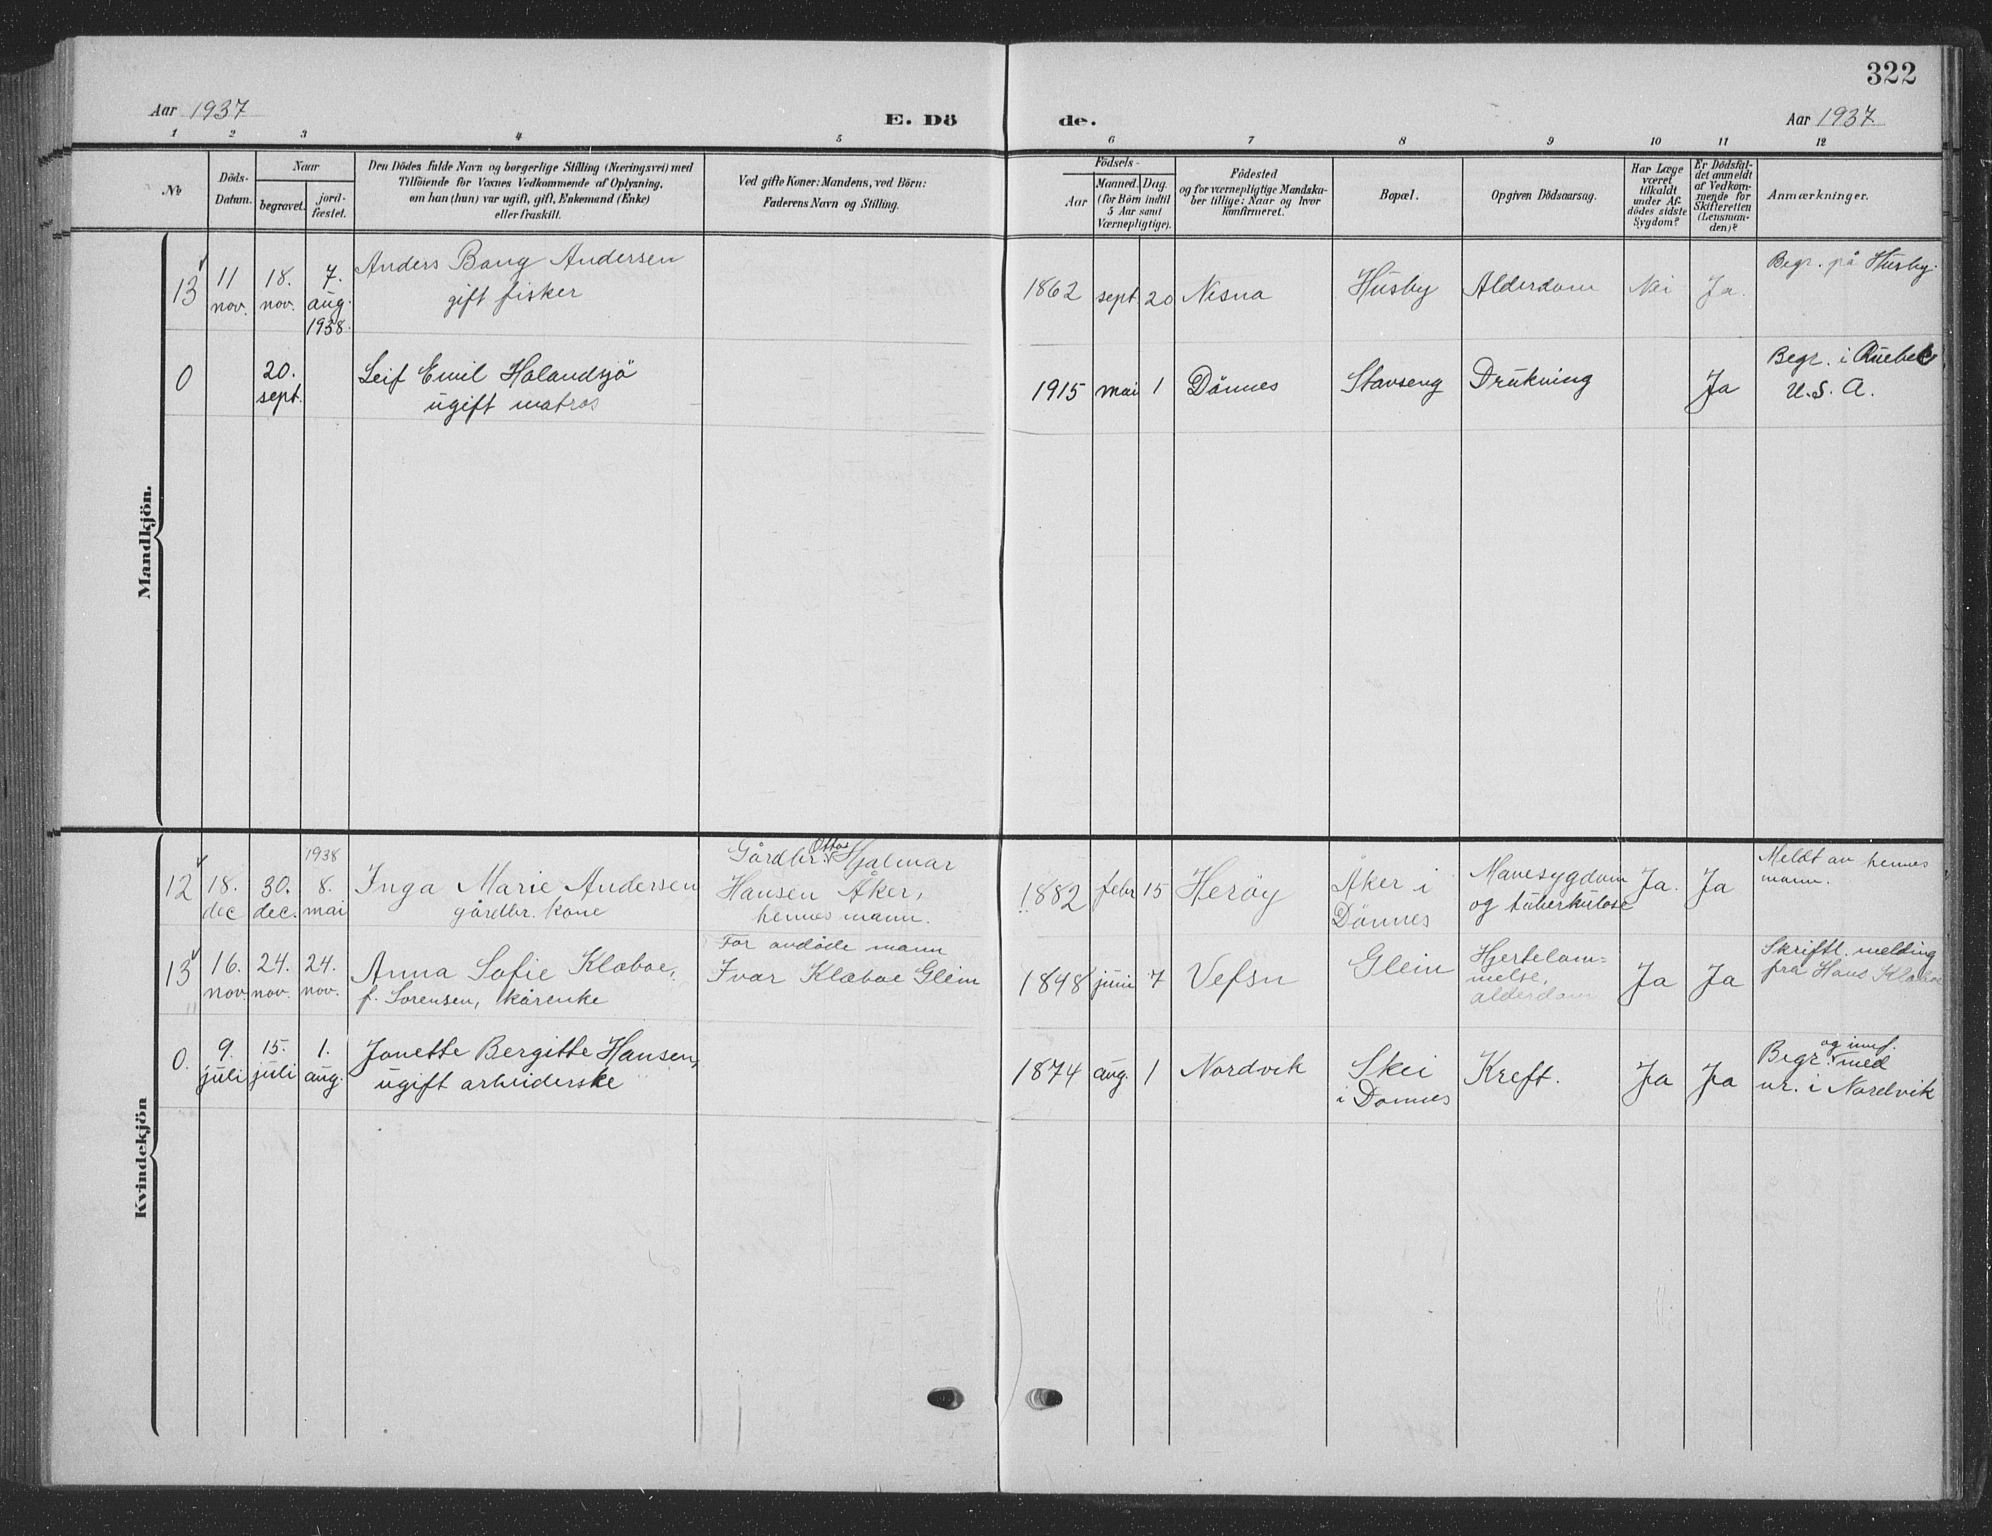 322
Aar 1937
E. Dö
de.
Aar 1937
1 2 3 4 5 6 7 8 9 10 11 12
No
Döds-
Datum.
Naar
begravet.
jord-
fæstet.
Den Dödes fulde Navn og borgerlige Stilling (Næringsvei) med
Tilföiende for Voxnes Vedkommende af Oplysning,
om han (hun) var ugift, gift, Enkemand (Enke)
eller fraskilt.
Ved gifte Koner: Mandens, ved Börn:
Faderens Navn og Stilling.
Födsels-
Aar
Maaned. Dag.
(for Börn indtil
5 Aar samt
Værnepligtige).
Födested
og for værnepligtige Mandska-
ber tillige: Naar og hvor
konfirmeret.
Bopæl.
Opgiven Dödsaarsag.
Har Læge
været
tilkaldt
under Af-
dödes sidste
Sygdom?
Er Dödsfal-
det anmeldt
af Vedkom-
mende for
Skifteretten
(Lensman-
den)?
Anmærkninger.
Mandkjön.
13
11
nov.
18.
nov.
7.
aug.
1938.
Anders Bang Andersen
gift fisker
1862 sept 20 Nesna
Husby
Alderdom
Nei
Ja.
Begr. på Husby.
0
20.
sept.
Leif Emil Holandsjö
ugift matros
1915 mai 1 Dönnes
Stavseng
Drukning
Ja
Begr. i
U.S.A.
Kvindekjön
12
18.
dec
30.
dec.
1938
8.
mai
Inga Marie Andersen
gårdbr. kone
Gårdbr. Ottos Hjalmar
Hansen Åker,
hennes mann.
1882 febr 15 Herøy
Åker i
Dönnes
Mavesygdom
og tuberkulose
Ja.
Ja
Meldt av hennes
mann.
13
16.
nov
24.
nov.
24.
nov.
Anna Sofie Klæboe,
f. Sorensen, kårenke
For avdöde mann
Ivar Klæboe Glein
1848 juni 7 Vefsn
Glein
Hjertelam-
melse,
alderdom
Ja
Ja
Skriftl. melding
fra Hans Klæboe
0.
9.
juli
15.
juli
1.
aug.
Jonette Bergitte Hansen,
ugift arbeiderske
1874 aug. 1 Nordvik
Skei
i Donnes
Kreft.
Ja
Ja
og innf.
Begr. med
nr. i Nordvik